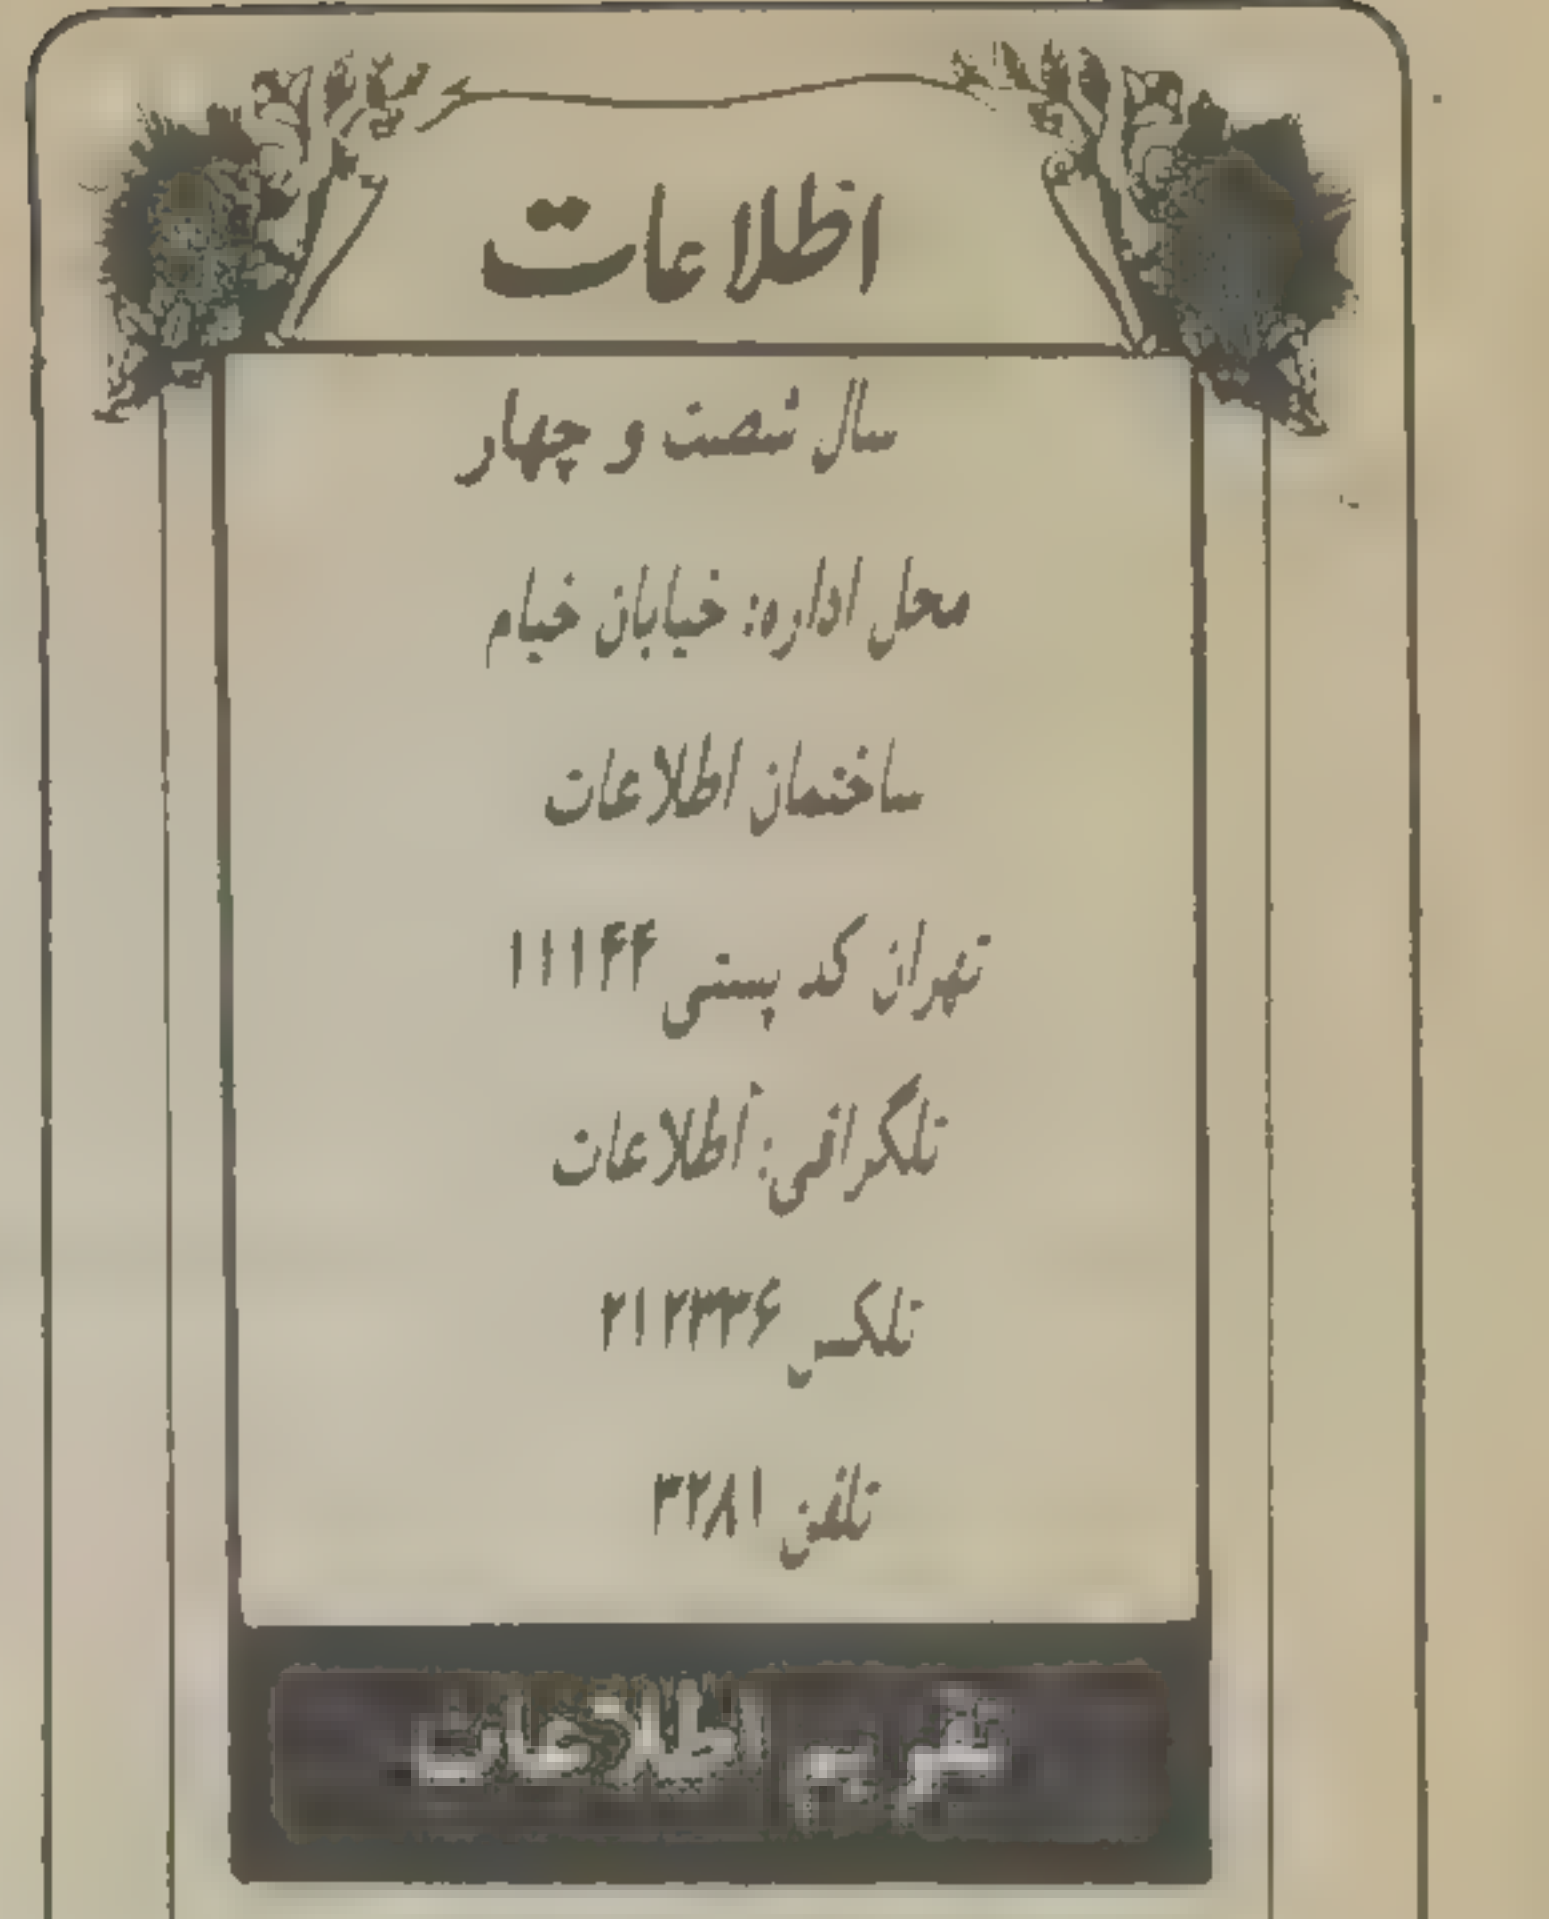 اطلاعات
سال شصت و چهار
محل اداره: خیابان خیام
ساختمان اطلاعات
تهران کد پستی ۱۱۱۴۴
تلگرافی: اطلاعات
تلکس ۲۱۲۳۳۶
تلفن ۳۲۸۱
اطلاعات